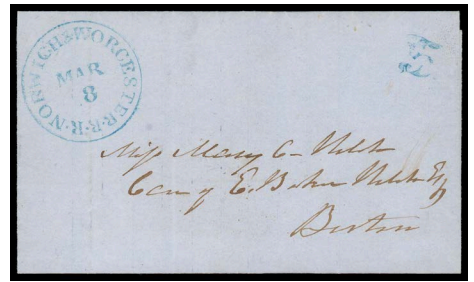 NORWICH & WORCESTER R.R.
MAR
8
5
Miss Mary C. Welch
Care of E. Baker Welch Esq
Boston